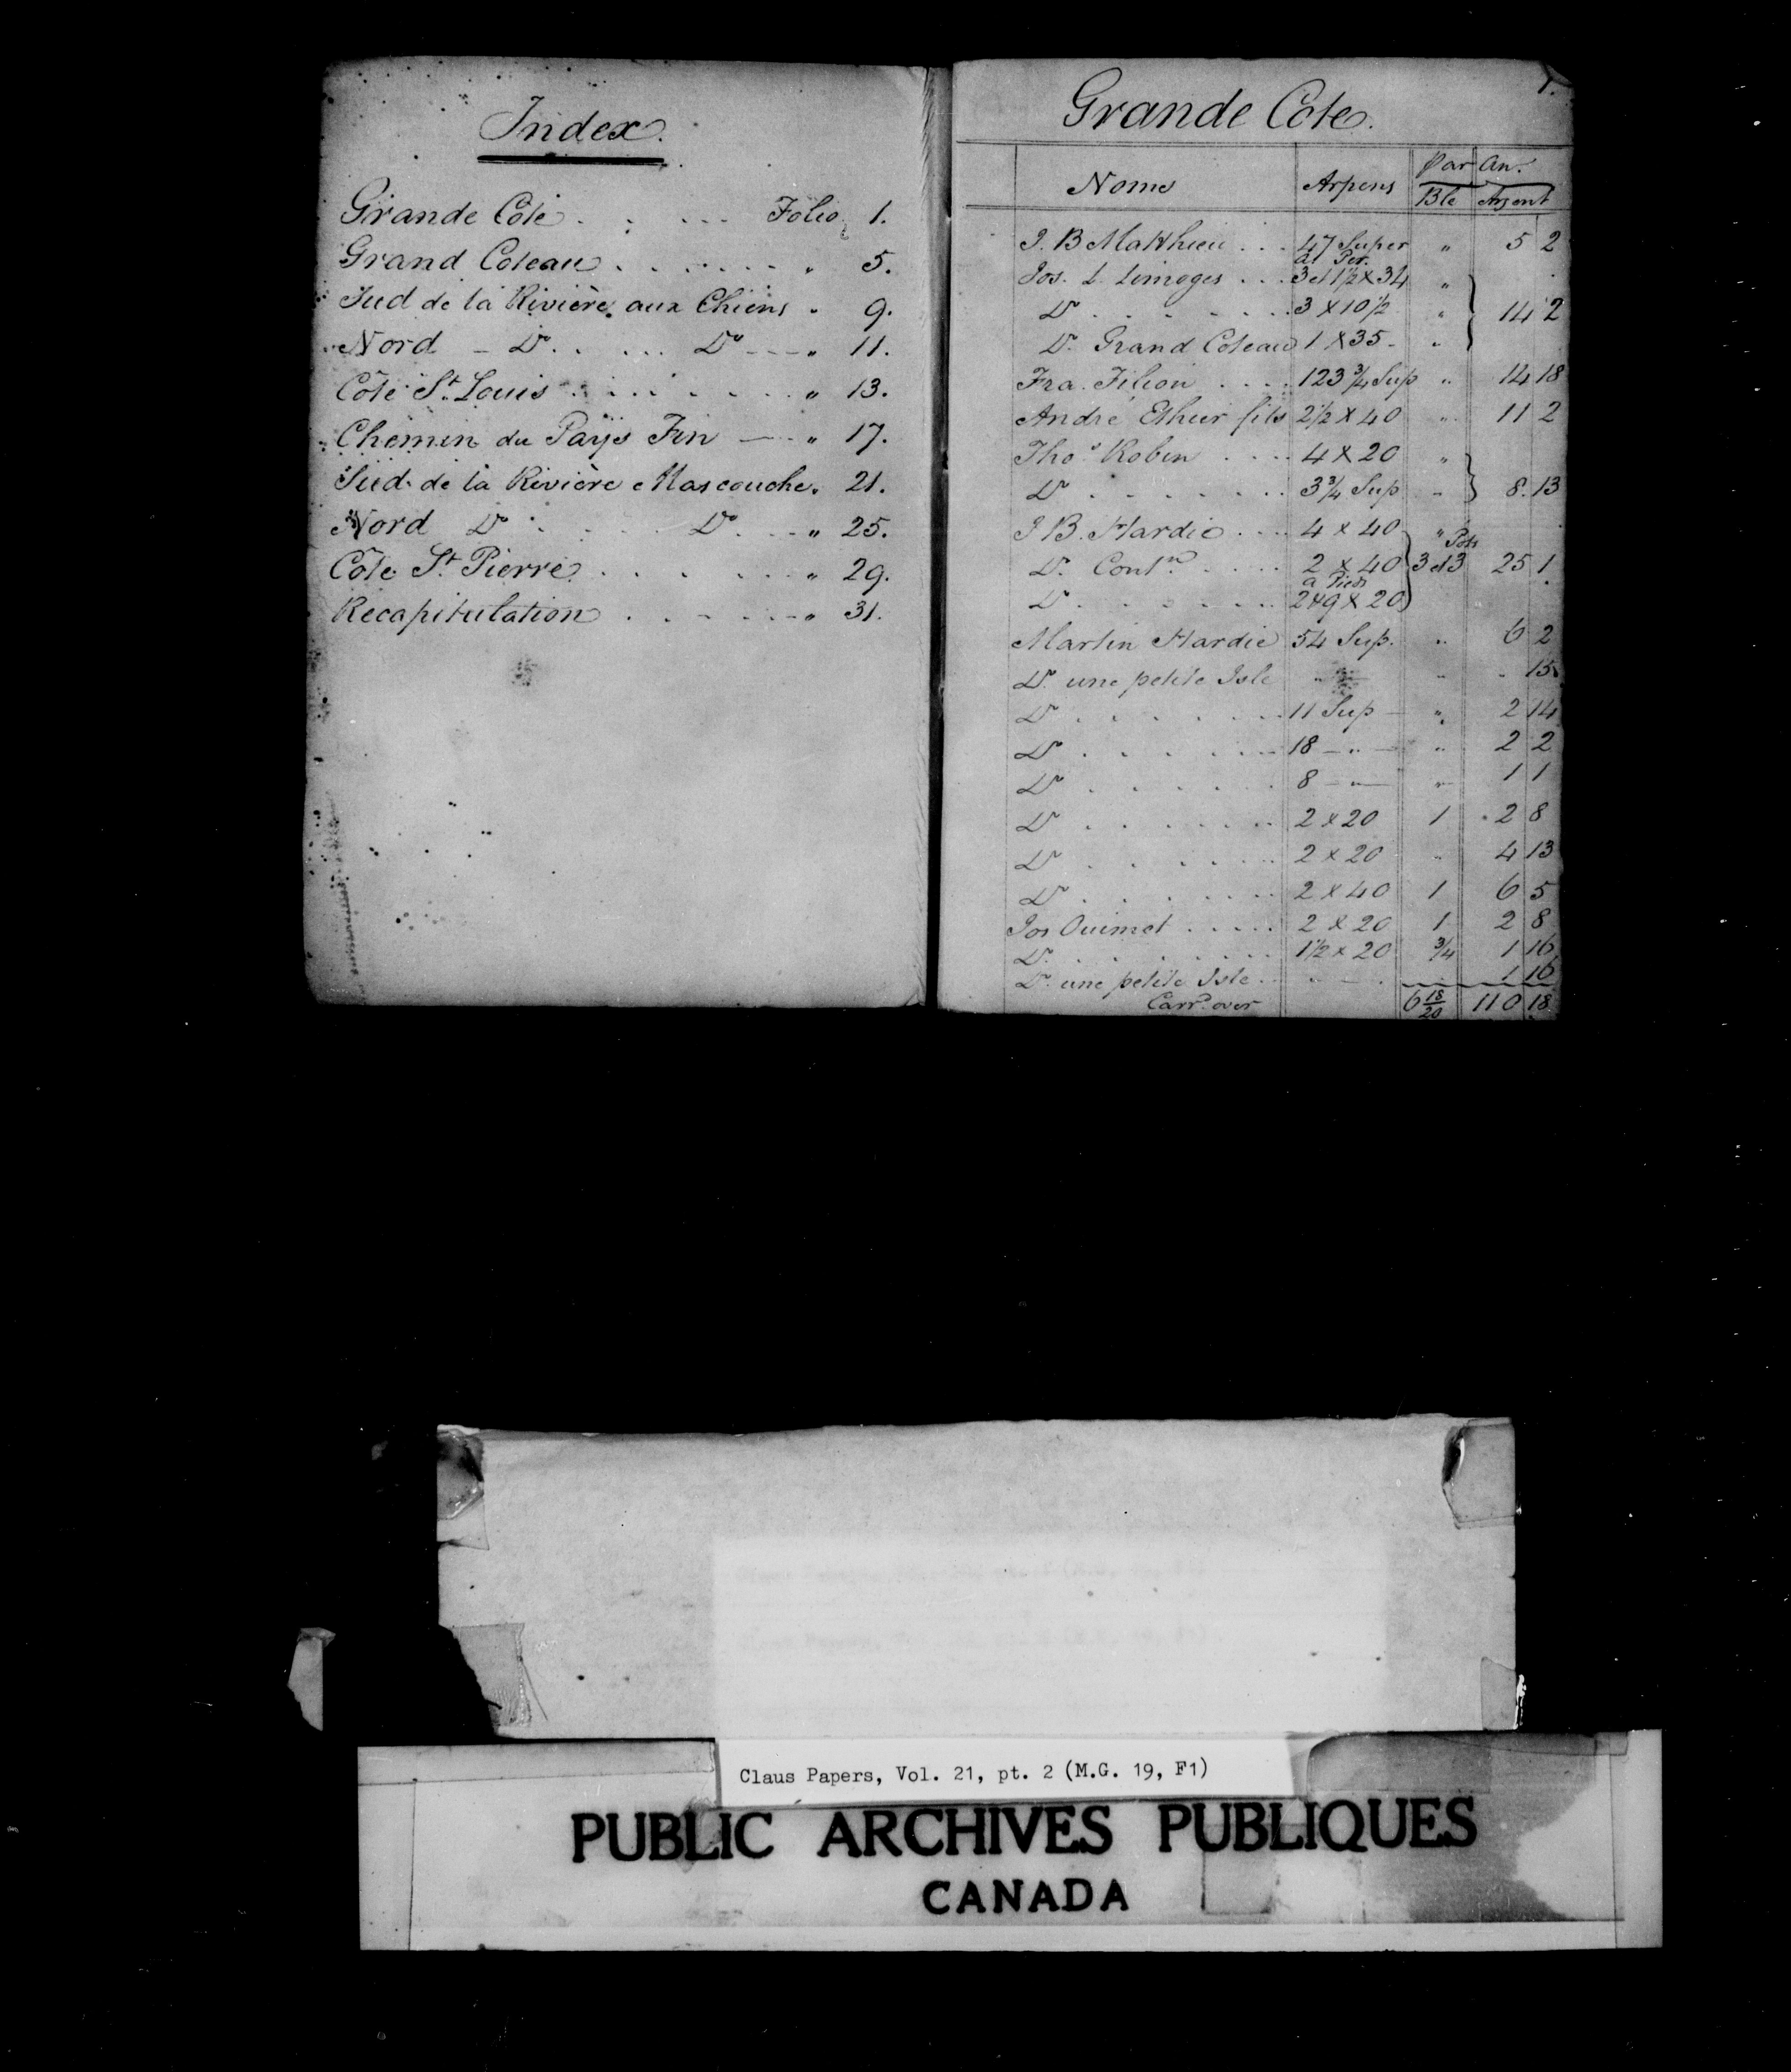 Index.
Grande Coté . . . . . Folio 1.
Grand Coteau . . . . . . . " 5.
Sud de la Rivière aux Chiens " 9.
Nord - Do. . . . . Do - - - " 11.
Côté St. Louis . . . . . . . . " 13.
Chemin du Pays Fin — - " 17.
Sud de la Rivière Mascouche " 21.
Nord Do . . . . Do . . . " 25.
Côte St. Pierre . . . . . . . " 29.
Recapitulation . . . . . . " 31.
1.
Grande Cote.
Par An.
Noms Arpens Ble Argent
J. B Matthieu . . . 47 Super " 5 2
a Per.
Jos. L. Limoges . . . 3 et 1 1/2 x 34 "
Do . . . . . . . 3 x 10 1/2 " } 14 2
Do. Grand Coteau 1 x 35 - "
Fra. Filion . . . . 123 3/4 Sup " 14 18
André Ethier fils 2 1/2 x 40 " 11 2
Thos. Robin . . . . 4 x 20 "
Do . . . . . . . 3 3/4 Sup " } 8. 13
J B. Hardie . . . . 4 x 40 "
Pots
Do. Contn. . . . . 2 x 40 } 3 et 3 25 1
a Pieds
Do . . . . . . . 2 x 9 x 20
Martin Hardie 54 Sup. " 6 2
Do. une petite Isle " " " 15
Do . . . . . . . 11 Sup — " 2 14
Do . . . . . . . 18 — " — " 2 2
Do . . . . . . . 8 — " — " 1 1
Do . . . . . . . 2 x 20 1 2 8
Do . . . . . . . 2 x 20 " 4 13
Do . . . . . . . 2 x 40 1 6 5
Jos Ouimet . . . . . 2 x 20 1 2 8
Do. . . . . . . . 1 1/2 x 20 3/4 1 16
Do. une petite Isle . . " — . 1 16
Carrd. over 6 18/20 110 18
Claus Papers, Vol. 21, pt. 2 (M.G. 19, F1)
PUBLIC ARCHIVES PUBLIQUES
CANADA